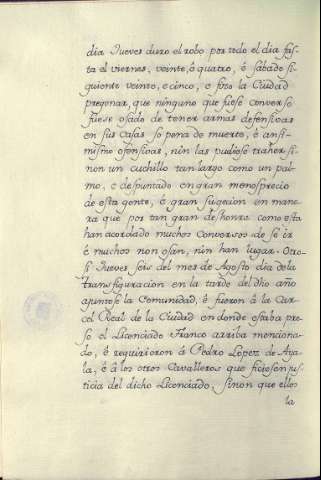 dia Jueves duro el robo por todo el dia fas-
ta el viernes, veinte, ó quatro, é sabado si-
guiente veinte, e cinco, e fizo la Ciudad
pregonar, que ninguno que fuese converso
fuese osado de tener armas defensivas
en sus casas so pena de muerte, é ansi-
misme ofensivas, nin las pudiese traher si-
non un cuchillo tan largo como un pal-
mo, e despuntado en gran menosprecio
de esta gente, é gran sugecion en mane-
ra que por tan gran deshonra como esta
han acordado muchos Conversos de se ir
é muchos non osan, nin han lugar. Otro-
si Jueves seis del mes de Agosto dia de la
transfiguracion en la tarde del dho año
aiuntose la Comunidad, é fueron á la Car-
cel Real de la Ciudad en donde estaba pre-
so el Licenciado Franco arriba menciona-
do, é requirieron á Pedro Lopez de Aya-
la, é á los otros Cavalleros que ficiesen jus-
ticia del dicho Licenciado, sinon que ellos
la